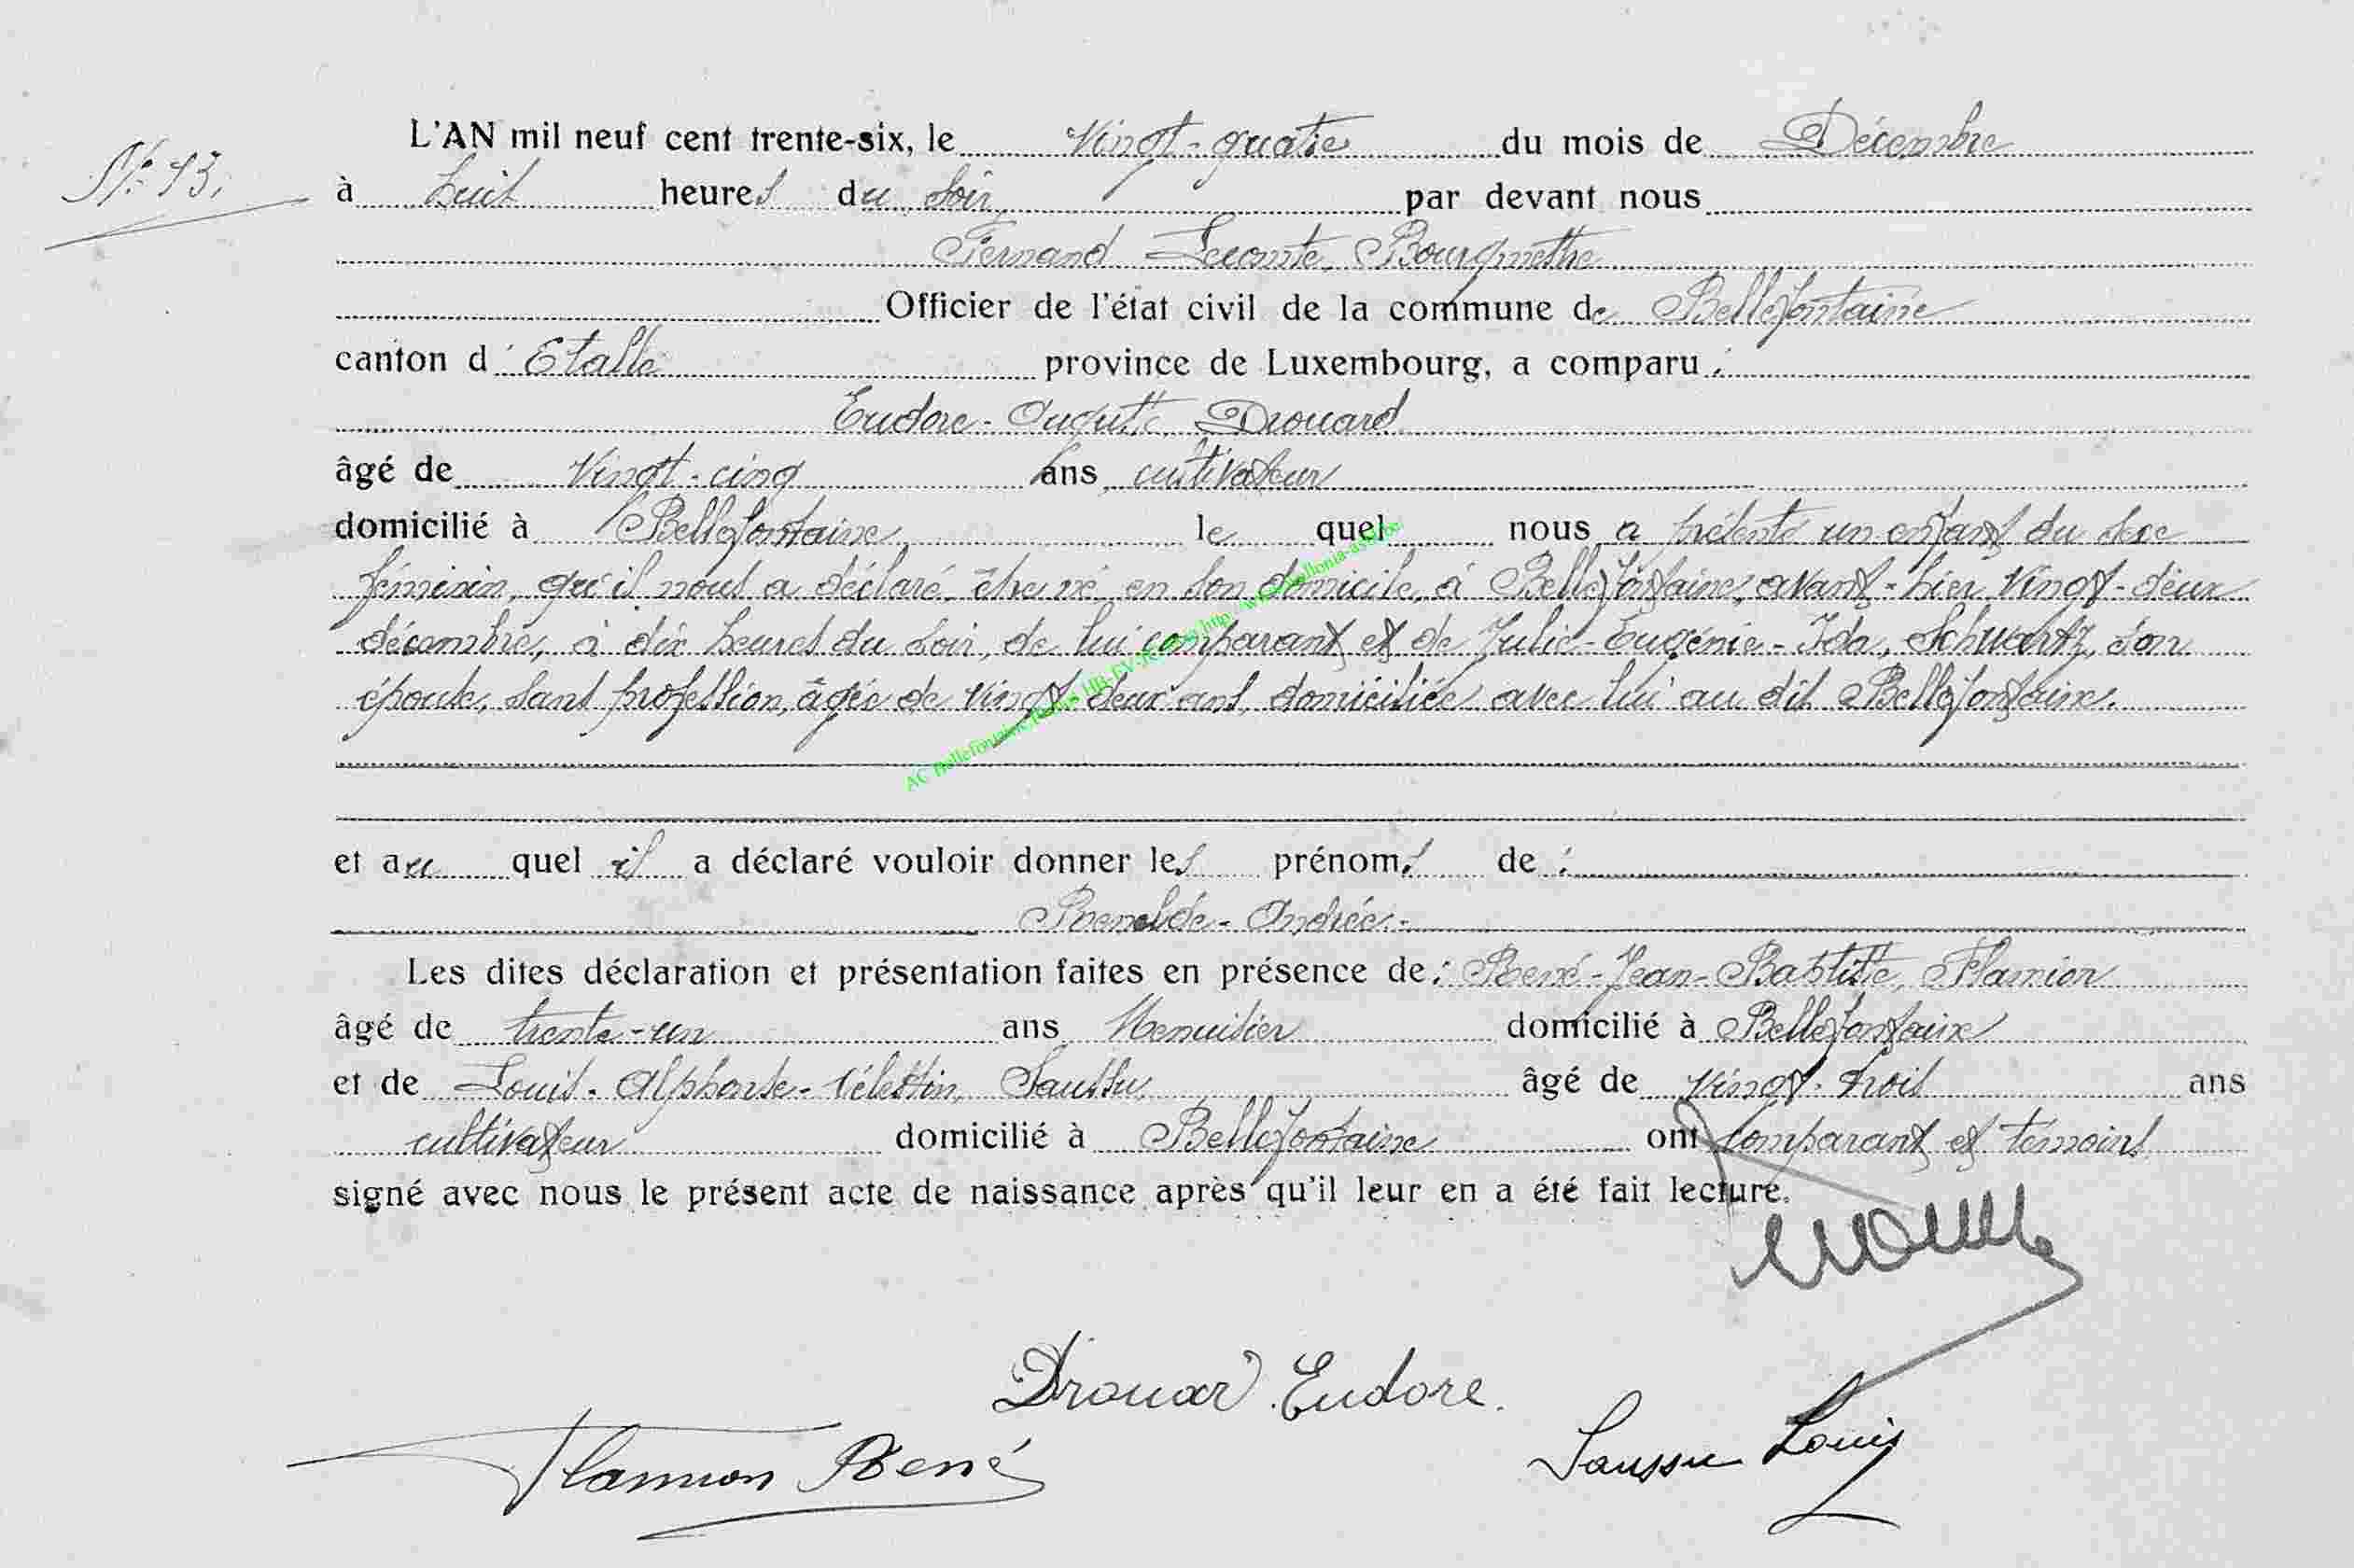 L'AN mil neuf cent trente-six, le Vingt-quatre du mois de Décembre
N° 13.
à huit heures du soir par devant nous
Fernand Lecomte, Bourgmestre
Officier de l'état civil de la commune de Bellefontaine
canton d'Etalle province de Luxembourg, a comparu :
Eudore-Auguste Drouard
âgé de Vingt-cinq ans, cultivateur
domicilié à Bellefontaine lequel nous a présenté un enfant du sexe
féminin, qu'il nous a déclaré être né en son domicile, à Bellefontaine, avant-hier Vingt-deux
décembre, à dix heures du soir, de lui comparant et de Julie-Eugénie-Ida, Schwartz, son
épouse, sans profession, âgée de vingt-deux ans, domiciliée avec lui au dit Bellefontaine.
et auquel il a déclaré vouloir donner les prénoms de :
Renelde-Andrée.-
Les dites déclaration et présentation faites en présence de : René-Jean-Baptiste, Flamion
âgé de trente-un ans Menuisier domicilié à Bellefontaine
et de Louis-Alphonse-Célestin, Saussu, âgé de Vingt-trois ans
cultivateur domicilié à Bellefontaine ont comparant et témoins
signé avec nous le présent acte de naissance après qu'il leur en a été fait lecture.
Drouard Eudore.
Flamion René
Saussu Louis